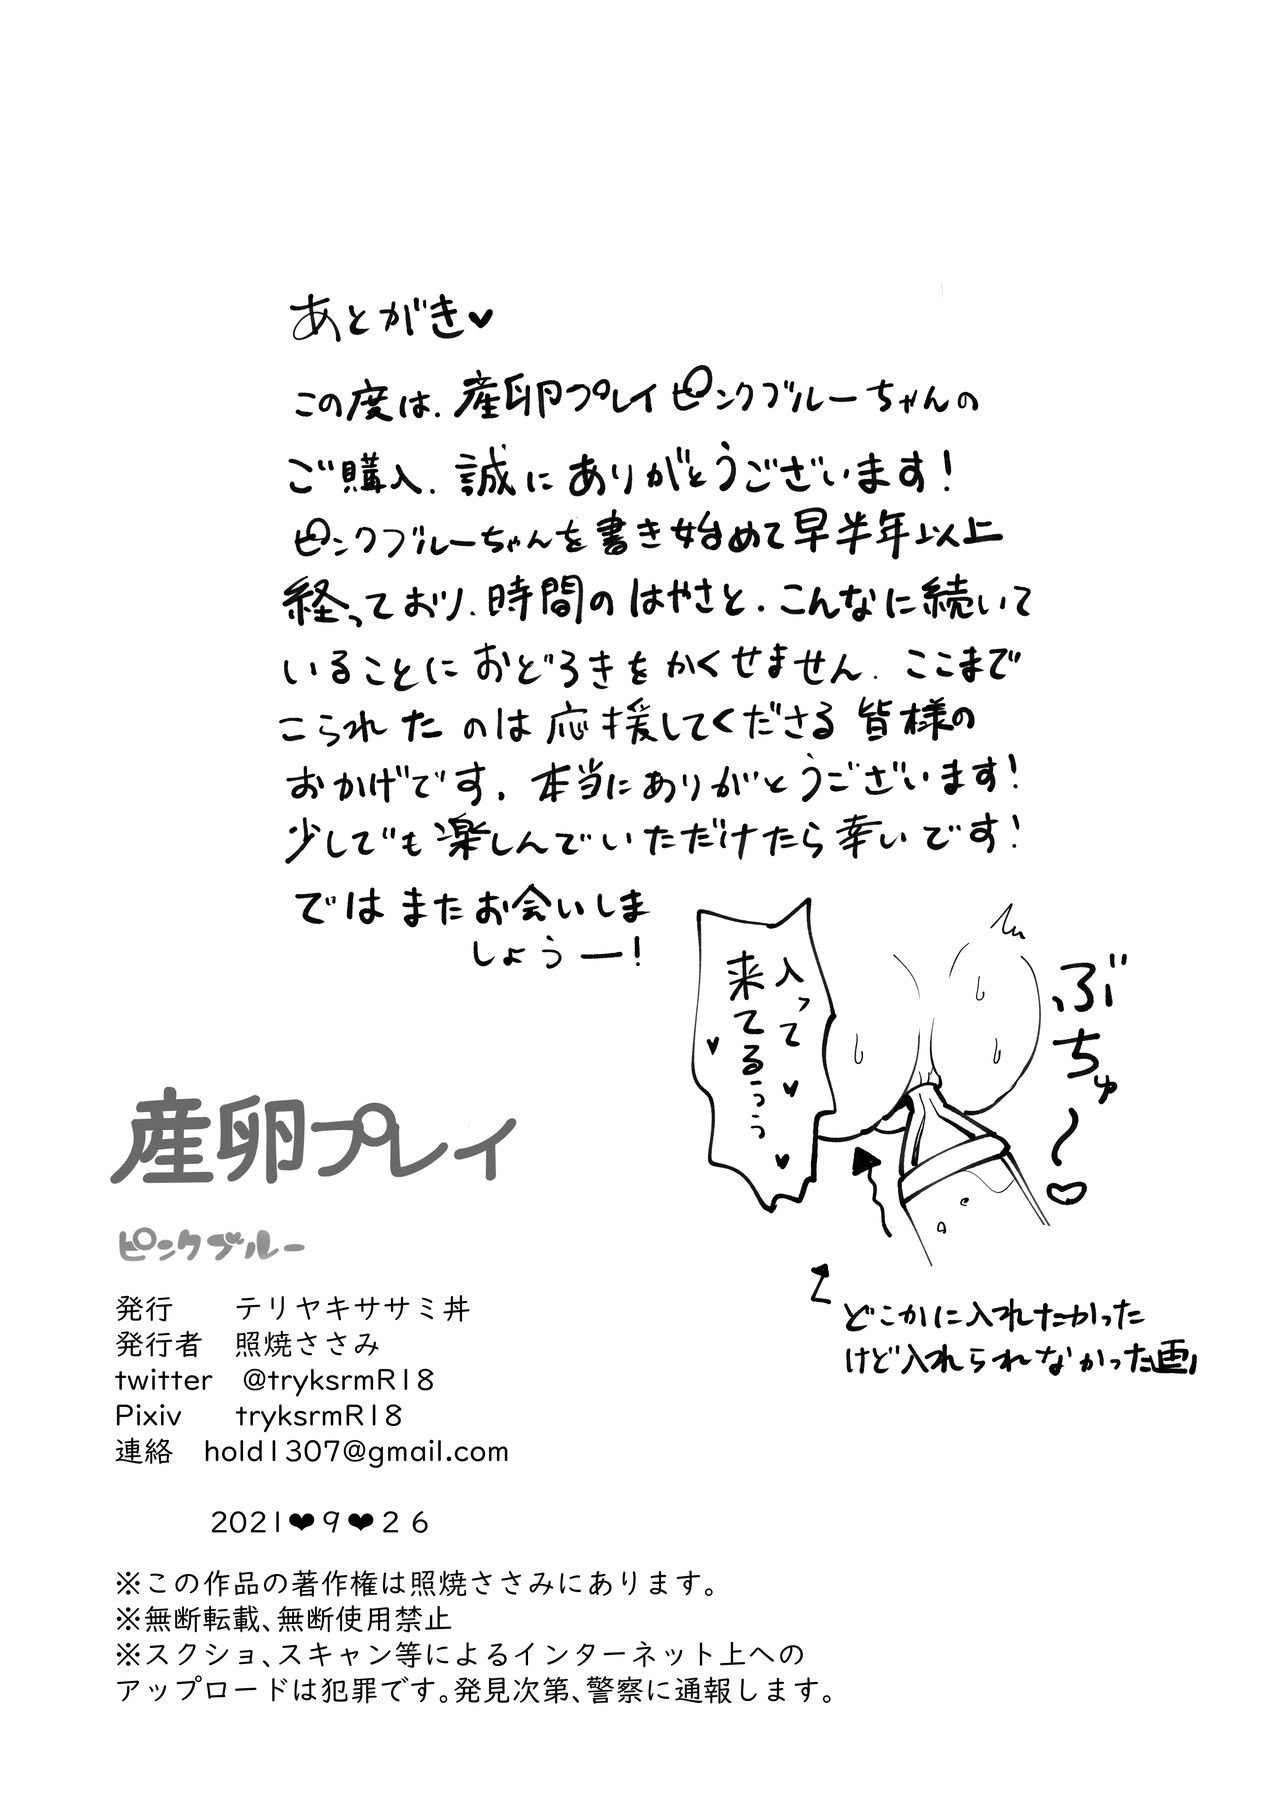 あとがき♥
この度は、産卵プレイピンクブルーちゃんの
ご購入、誠にありがとうございます!
ピンクブルーちゃんを書き始めて早半年以上
経っており、時間のはやさと、こんなに続いて
いることにおどろきをかくせません。ここまで
こられたのは応援してくださる皆様の
おかげです。本当にありがとうございます!
少しでも楽しんでいただけたら幸いです!
ではまたお会いしま
しょうー!
入って♥
来てるぅぅ♥
ぶちゅ~♡
どこかに入れたかった
けど入れられなかった画
産卵プレイ
ピンクブルー
発行 テリヤキササミ丼
発行者 照焼ささみ
twitter @tryksrmR18
Pixiv tryksrmR18
連絡 hold1307@gmail.com
2021❤9❤26
※この作品の著作権は照焼ささみにあります。
※無断転載、無断使用禁止
※スクショ、スキャン等によるインターネット上への
アップロードは犯罪です。発見次第、警察に通報します。